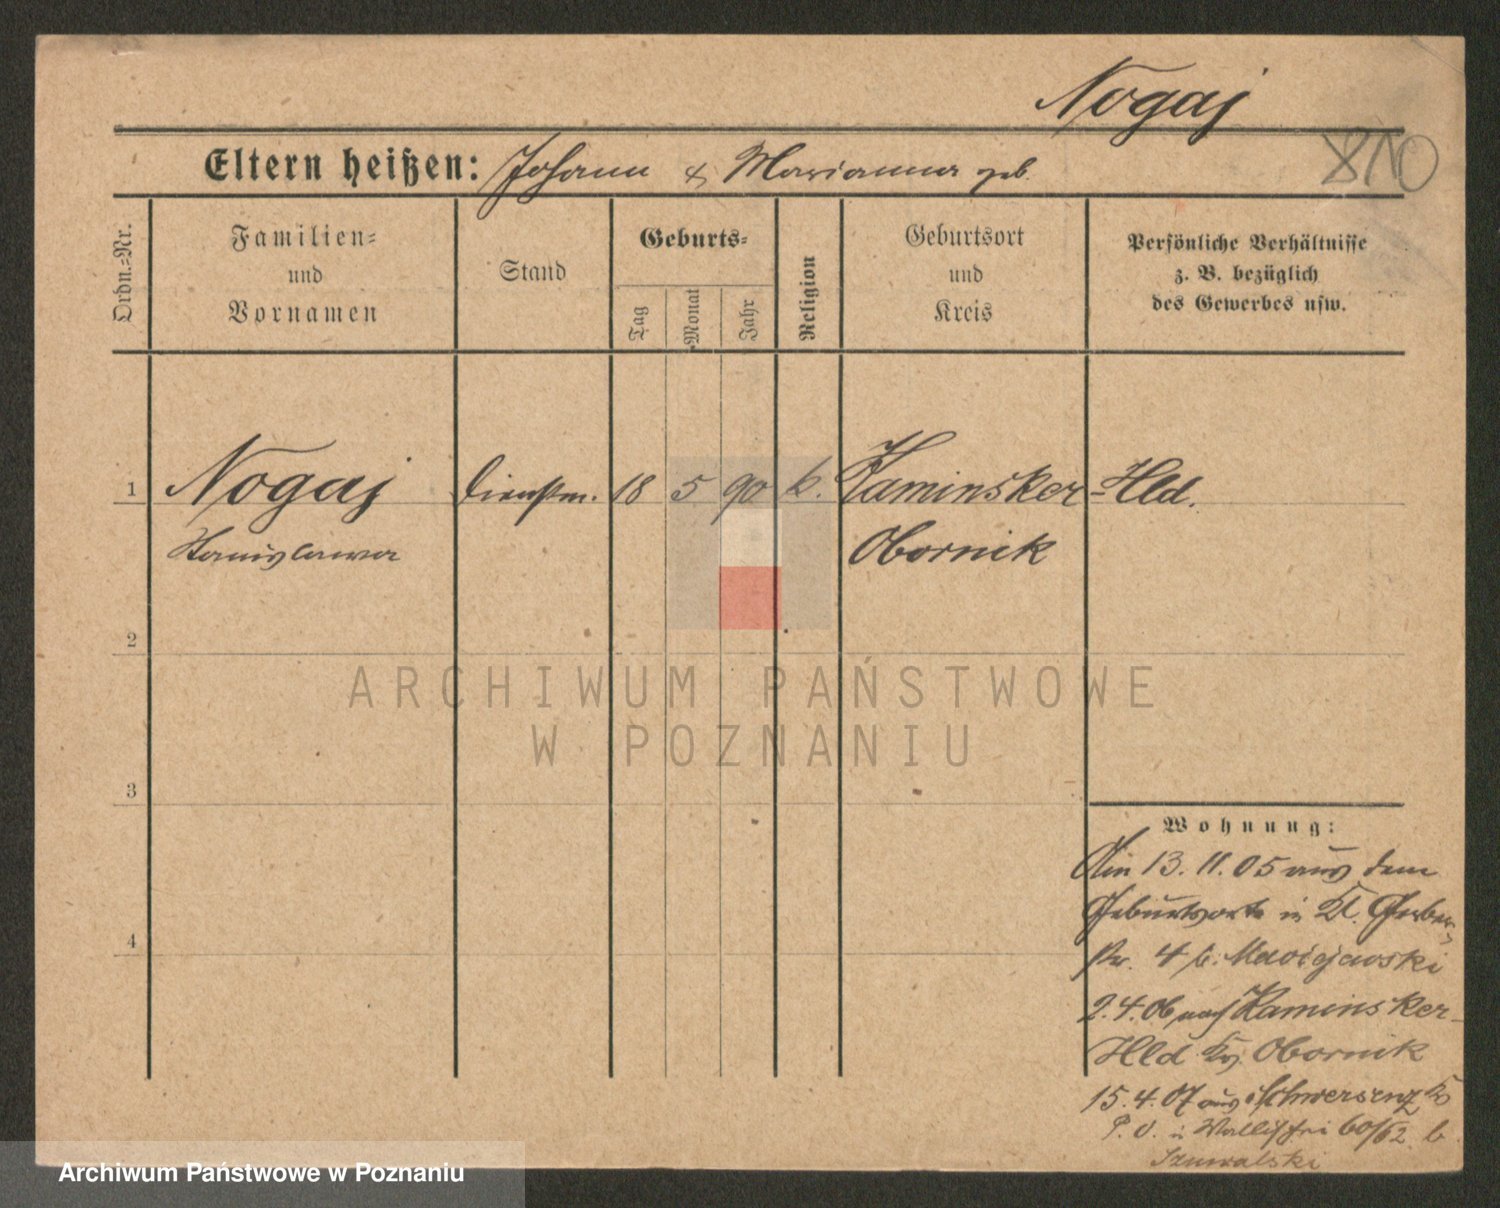 Nogaj
810
Eltern heißen: Johann & Marianna geb.
Ordn.-Nr.
Familien-
und
Vornamen
Stand
Geburts-
Tag
Monat
Jahr
Religion
Geburtsort
und
Kreis
Persönliche Verhältnisse
z. B. bezüglich
des Gewerbes usw.
1 Nogaj Dienstm. 18 5 90 k. Kaminsker-Hld.
Stanislawa Obornik
2
ARCHIWUM PAŃSTWOWE
W POZNANIU
3
Wohnung:
Am 13.11.05 aus dem
Geburtsorte in Kl. Gerber-
str. 4 b. Maciejewski
2.4.06 nach Kaminsker-
Hld Krs. Obornik
15.4.07 aus Schwersenz Krs
P. O. in Wallischei 60/62 b
4
Archiwum Państwowe w Poznaniu